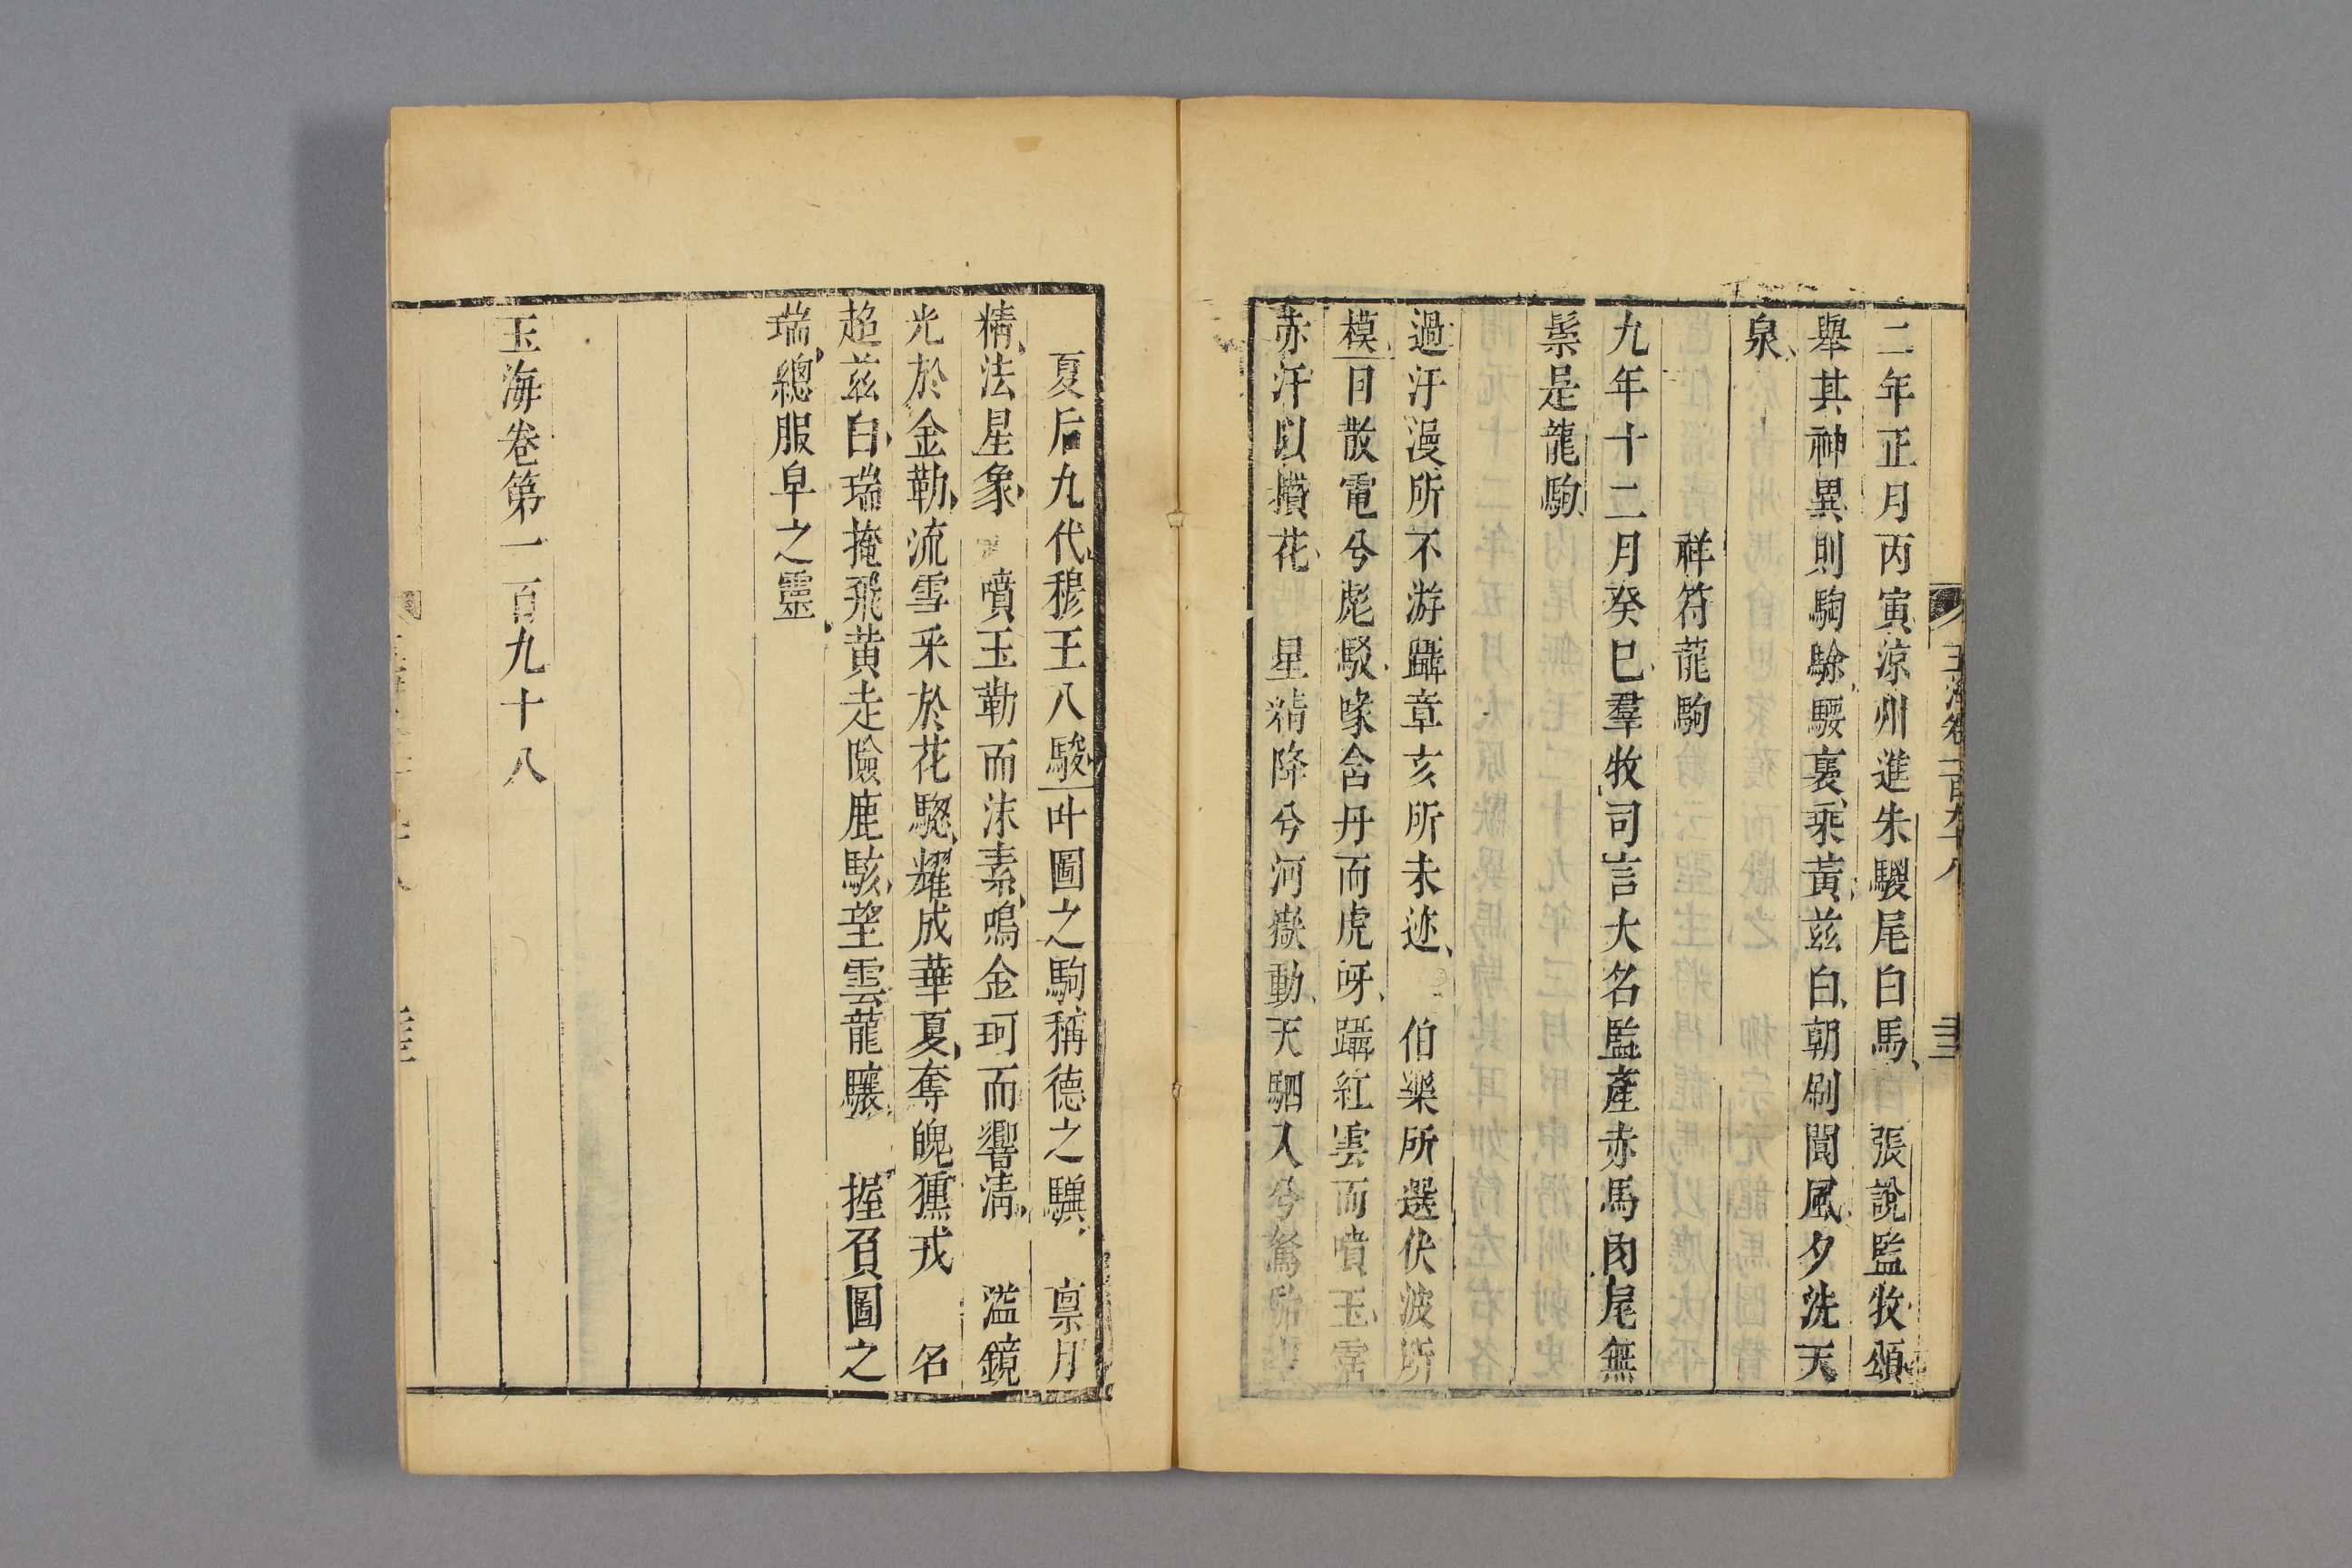 玉海卷一百九十八
二年正月丙寅涼州進朱騣尾白馬 張說監牧頌
舉其神異則駒駼騕褭乘黃兹白朝刷閬風夕洗天
泉
祥符龍駒
九年十二月癸巳羣牧司言大名監產赤馬肉尾無
鬃是龍駒
過汗漫所不游躡章亥所未迹 伯樂所選伏波所
模 日散電兮彪駁喙舍丹而虎呀躡紅雲而噴玉霑
赤汗以攢花 星精降兮河嶽動天駟入兮駑駘
夏后九代穆王八駿 叶圖之駒稱德之驥 禀月
精法星象 噴玉勒而沫素鳴金珂而響清 滥鏡
光於金勒流雪采於花驄耀成華夏奪魄獯戎 名
超兹白瑞掩飛黄走險鹿駭望雲龍驤 握負圖之
瑞總服皁之靈
玉海卷第一百九十八